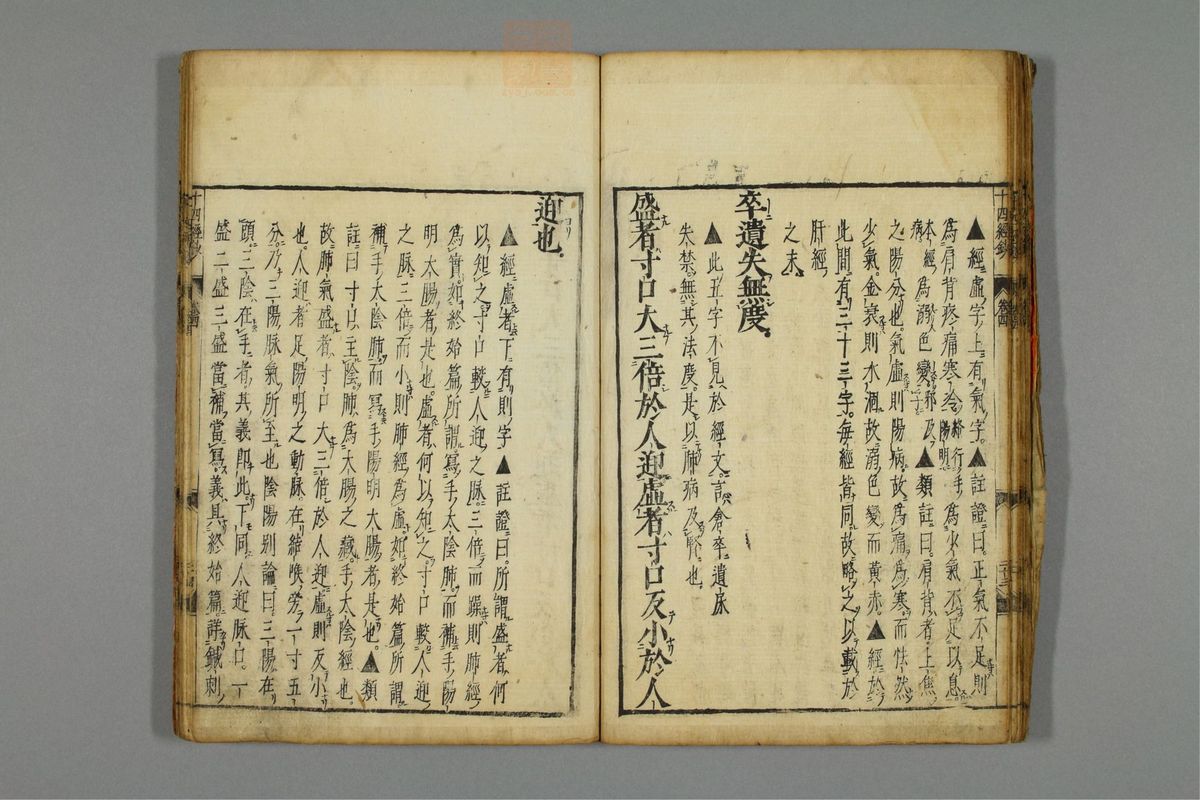 ▲經虛字上有氣字▲註證曰正氣不足則
爲肩背疼痛寒冷絡行手陽明爲少氣不足以息
本經病爲溺色變邪及▲類註曰肩背者上焦
之陽分也氣虛則陽病故爲痛爲寒而怯然
少氣金衰則水涸故溺色變而黃赤▲經於
此間有二十三字每經皆同故略之以載於
肝經
之末
卒遺失無度
▲此五字不見於經文言倉卒遺尿
失禁無其法度是以肺病及腎也
盛者寸口大三倍於人迎虛者寸口反小於人
迎也
▲經虛者下有則字▲註證曰所謂盛者何
以知之寸口較人迎之脉三倍而躁則肺經
爲實如終始篇所謂寫手太陰肺而補手陽
明大腸者是也虛者何以知之寸口較人迎
之脉三倍而小則肺經爲虛如終始篇所謂
補手太陰肺而寫手陽明大腸者是也▲類
註曰寸口主陰肺爲大腸之藏手太陰經也
故肺氣盛者寸口大三倍於人迎虛則反小
也人迎者足陽明之動脉在結喉旁一寸五
分乃三陽脉氣所至也陰陽別論曰三陽在
頭三陰在手者其義即此下同人迎脉口一
盛二盛三盛當補當寫義具終始篇詳鍼刺
十四經鈔
卷四
十四經鈔
卷四